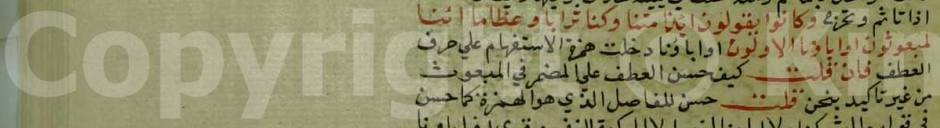 اذا تاثم وتحرج وكانوا يقولون ائذا متنا وكنا ترابا وعظاما ائنا
لمبعوثون اواباؤنا الاولون اواباؤنا دخلت همزة الاستفهام على حرف
العطف فان قلت كيف حسن العطف على المضمر في المبعوث
من غير تاكيد بنحن قلت حسن للفاصل الذي هو الهمزة كما حسن